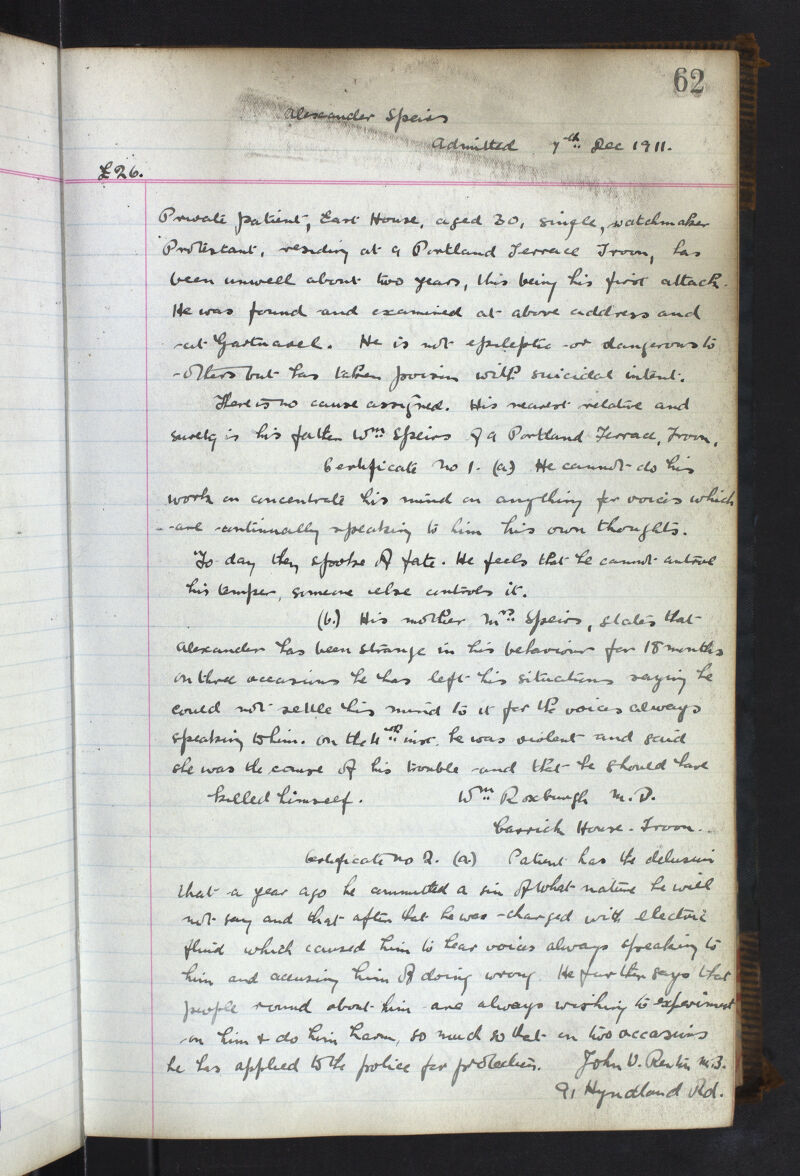 62
Alexander Speirs
Admitted 7th Dec 1911.
£26.
Private patient, East House, aged 30, single, watchmaker
Protestant, residing at 9 Portland Terrace Troon, has
been unwell about two years, this being his first attack.
He was found and examined at above address and
at Gartnavel. He is not epileptic or dangerous to
others but has taken poison with suicidal intent.
There is no cause assigned. His nearest relative and
surety is his father Wm Speirs of 9 Portland Terrace, Troon.
Certificate No 1. (a) He cannot do his
work or concentrate his mind on anything for voices which
are continually speaking to him his own thoughts.
To day they spoke of fate. He feels that he cannot control
his temper, someone else controls it.
(b.) His mother Mrs Speirs, states that
Alexander has been strange in his behaviour for 18 months
on three occasions he has left his situations saying he
could not settle his mind to it for the voices always
speaking to him. On the 4th inst. he was violent and said
she was the cause of his trouble and that he should have
killed himself. Wm Roxburgh M.D.
Carrick House - Troon.
Certificate No 2. (a) Patient has the delusion
that a year ago he committed a sin of what nature he will
not say and that after that he was charged with electric
fluid which caused him to hear voices always speaking to
him and accusing him of doing wrong. He further says that
people round about him are always wishing to experiment
on him & do him harm, so much so that on two occasions
he has applied to the police for protection. John V. M.B.
91 Hyndland Rd.